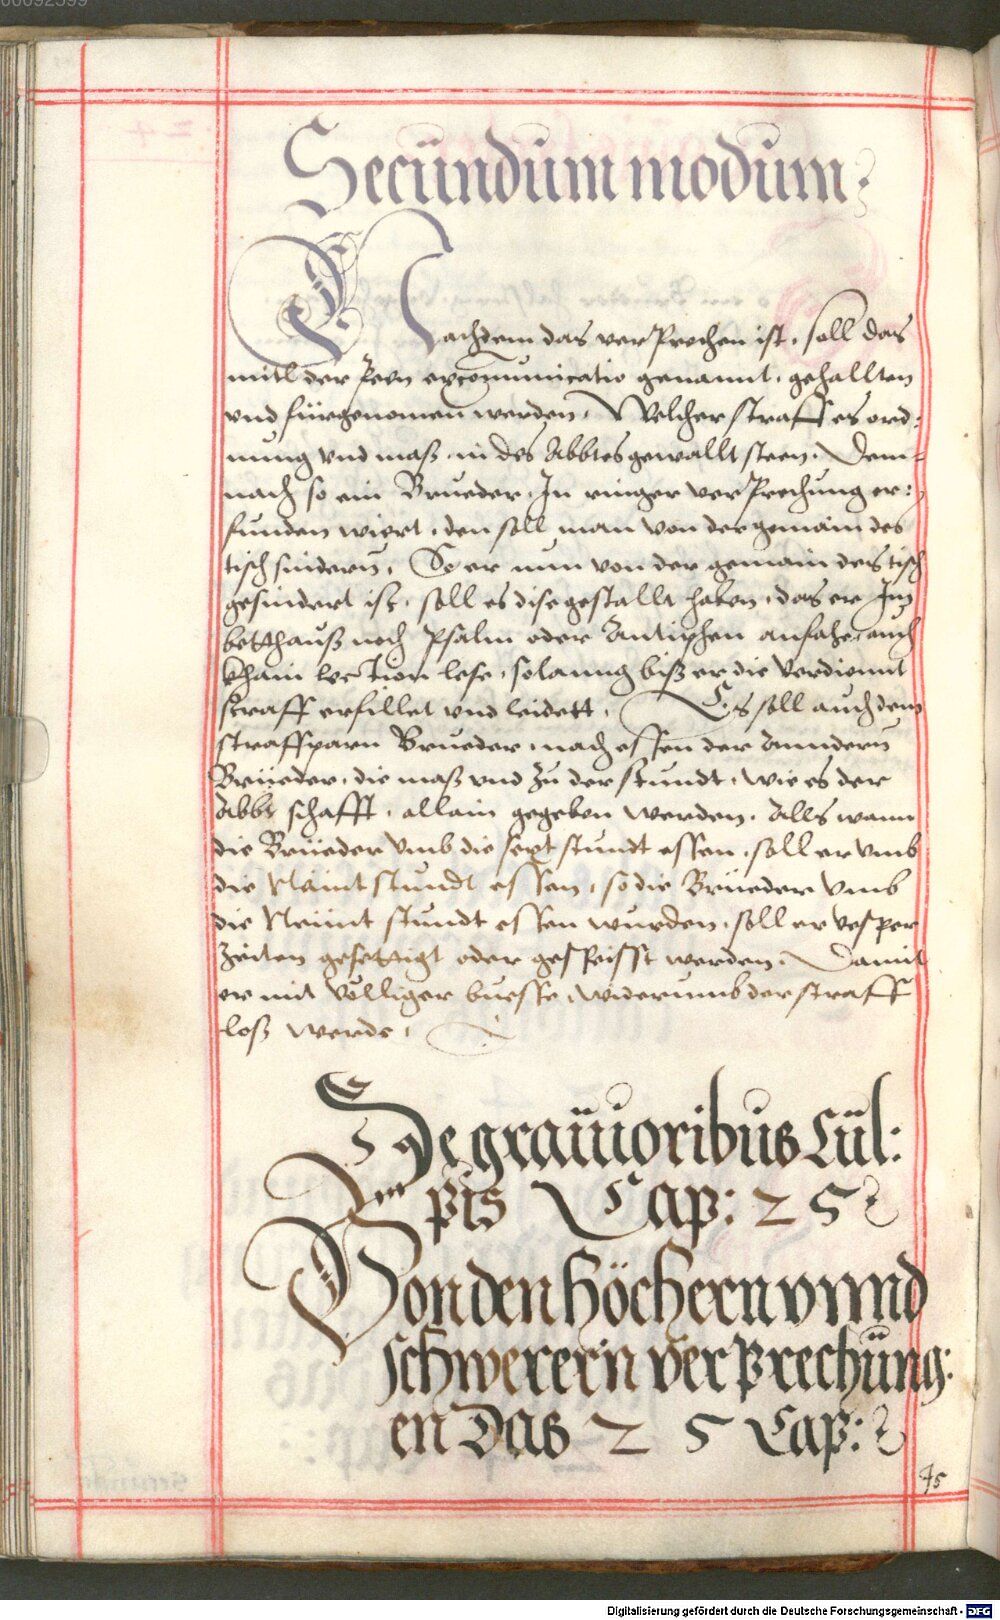 Secundum modum
Nachdem das verPrechen ist, soll das
mitl der Peen excomunicatio genannt, gehallten
vnd fürgenomen werden. Welcher straff es ord:
nung vnd maß, in des Abbtes gewallt steen. Dem-
nach so ein Brueder, In ringer verPrechung er:
funden wiert, den soll man von der gemain des
tisch sindern, So er nun von der gemain des tisch
gesindert ist, soll es dise gestallt haben, das er Im
betthauß noch Psalm oder Antiphen anfahe, auch
khain lection lese, solanng biß er die verdiennt
straff erfillet vnd leidett. Es soll auch dem
straffparn Brueder, nach essen der Anndern
Brüeder, die maß vnd zu der stundt, wie es der
Abbt schafft, allain gegeben werden. Alls wann
die Brüeder vmb die sext stundt essen, soll er vmb
die Neunt stundt essen, so die Brüeder vmb
die Neünt stundt essen wurden, soll er vesper
zeiten gesettigt oder gespeisst werden. Damit
er mit völliger buesse, widerumb der straff
loß werde.
De grauuoribus Cül:
pis Cap: 25
Von den höchern vnnd
schwerern verPrechüng:
en Das 25 Cap:
45
Digitalisierung gefördert durch die Deutsche Forschungsgemeinschaft - DFG